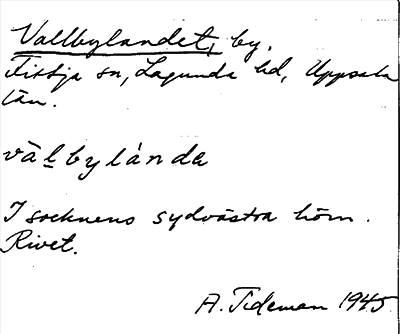 Vallbylandet, by.
Fittja sn, Lagunda hd, Uppsala
län.
väl̲bylánda
I socknens sydvästra hörn.
Rivet.
A. Tideman 1945